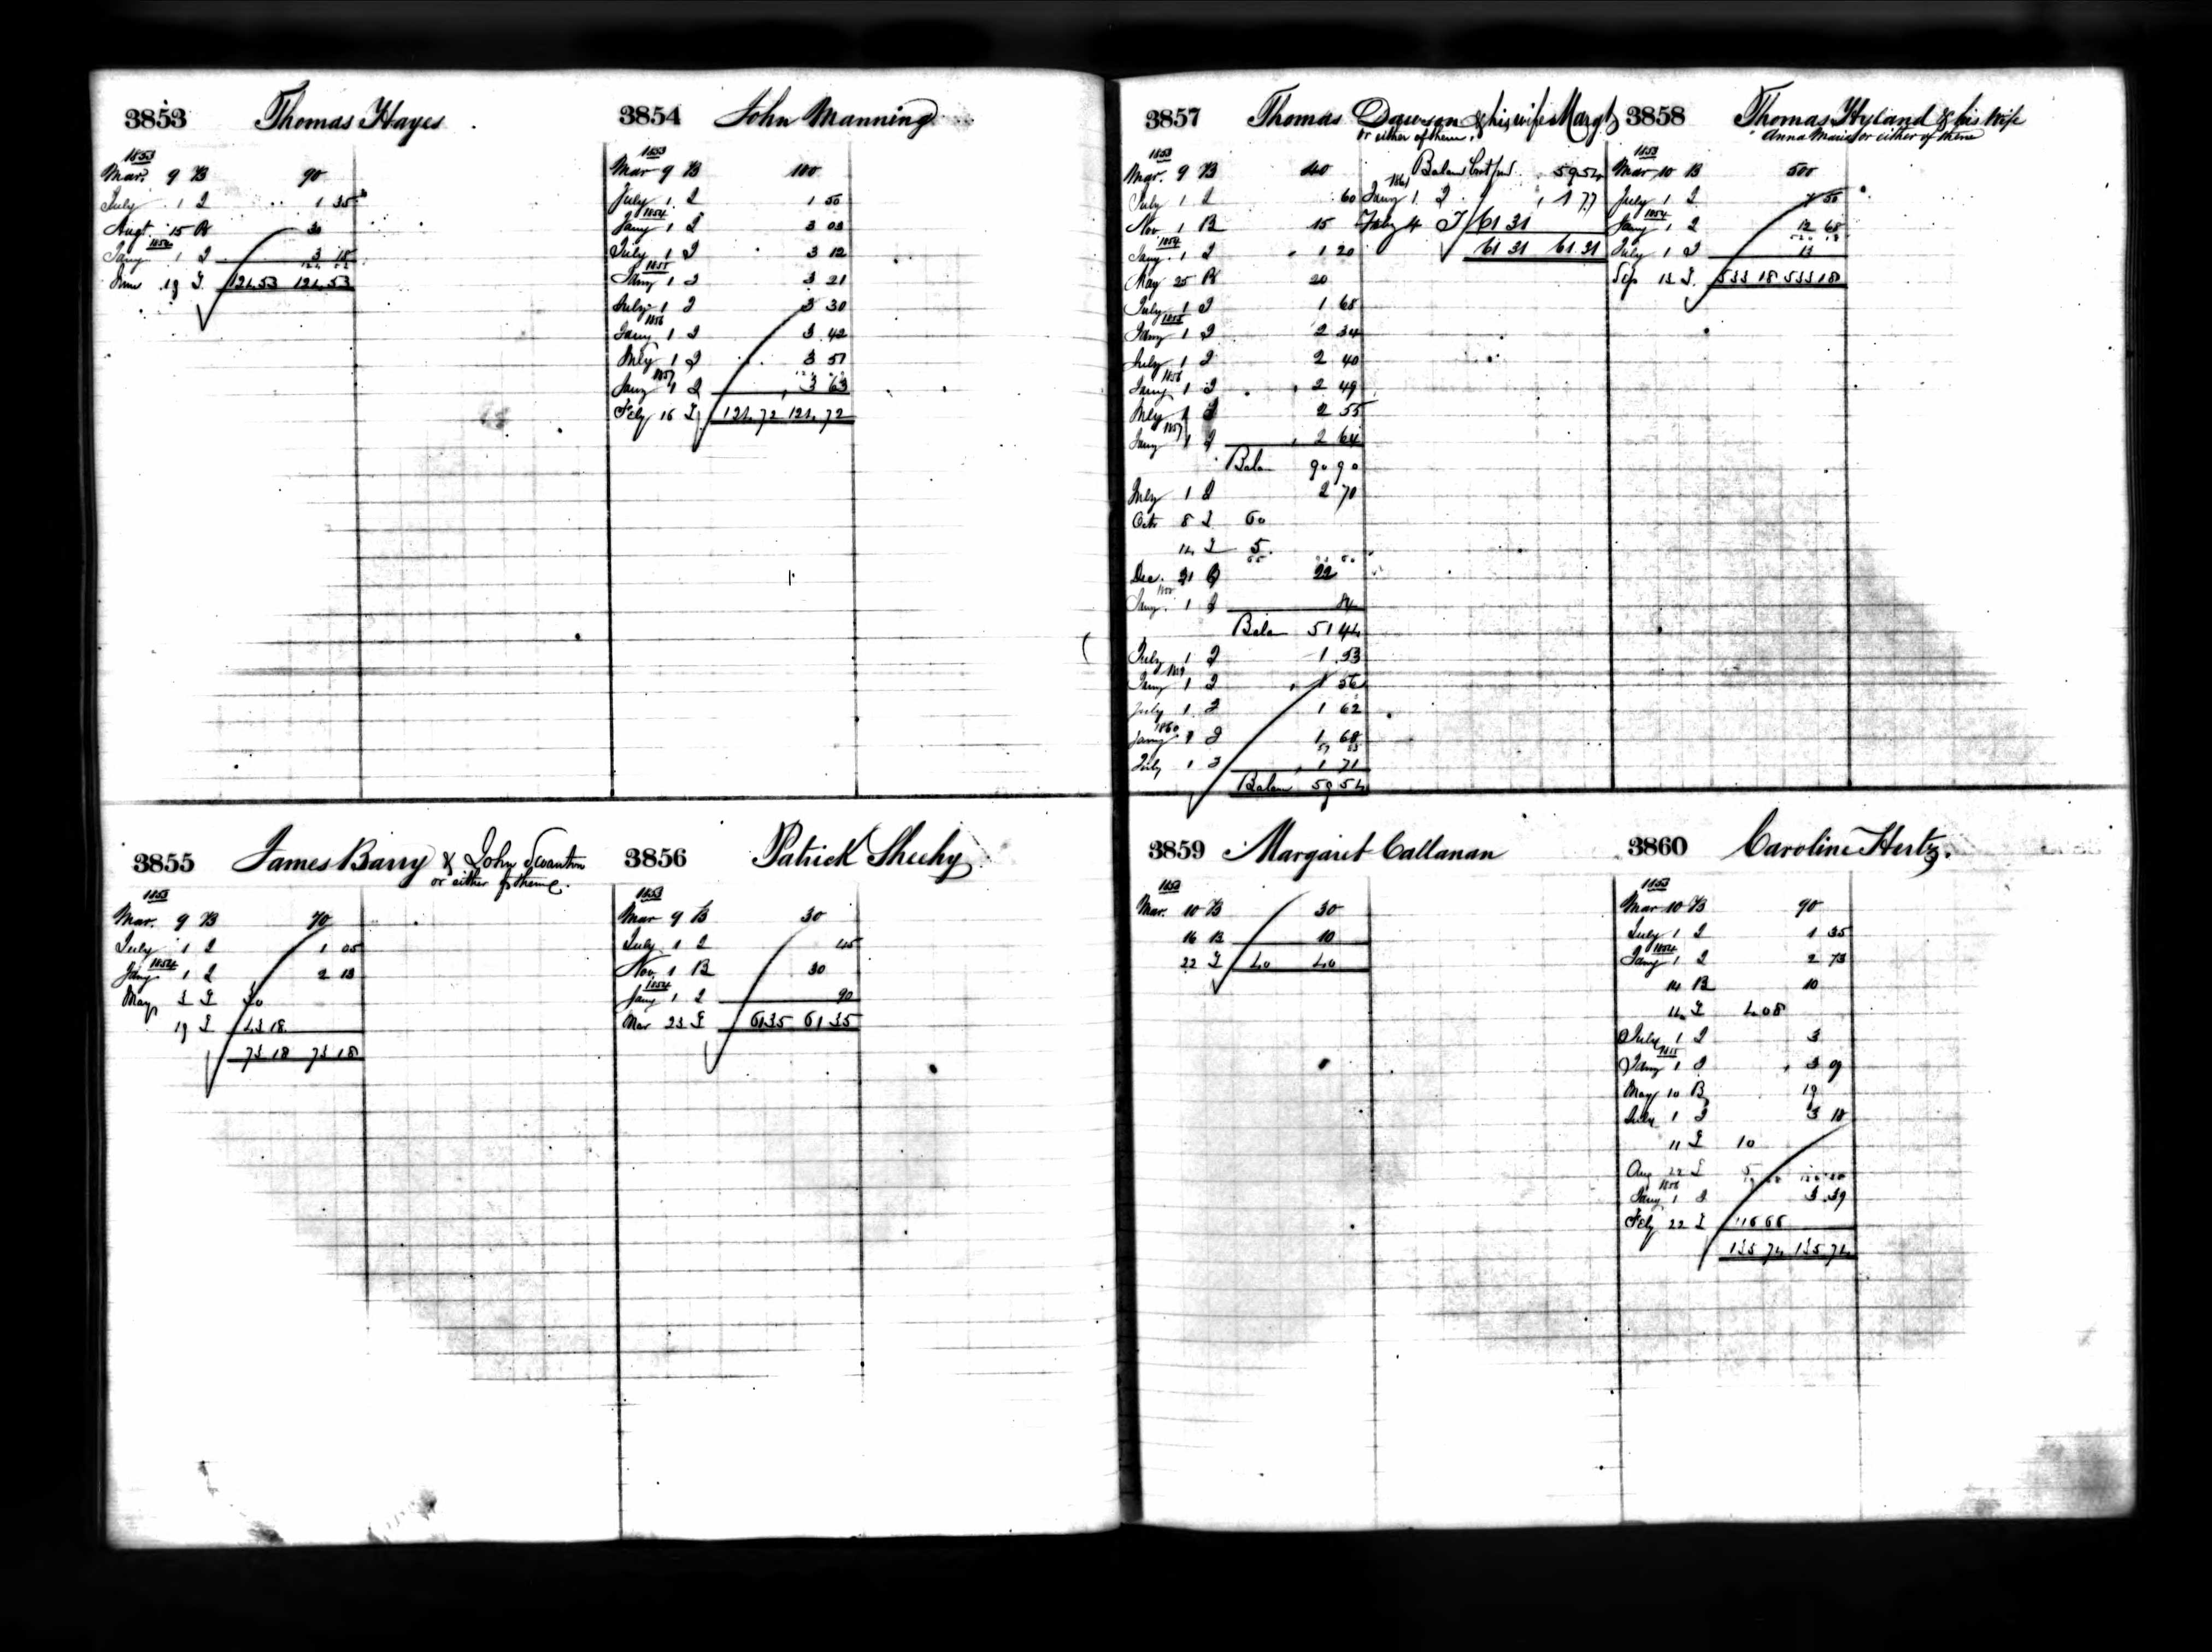 3853 Thomas Hayes
1853
Mar. 9 B 90
July 1 I 1 35
Augt 15 B 30
1854
Jany 1 I 3 18
June 19 I 124 53 124 53
3854 John Manning
1853
Mar 9 B 100
July 1 I 1 50
1854
Jany 1 I 3 03
July 1 I 3 12
1855
Jany 1 I 3 21
July 1 I 3 30
1856
Jany 1 I 3 42
July 1 I 3 51
1857
Jany 1 I 3 63
Feby 16 I 124 72 124 72
3855 James Barry & John Swanton
or either of them.
1853
Mar. 9 B 70
July 1 I 1 05
1854
Jany 1 I 2 13
May 3 I 30
19 I 43 18
73 18 73 18
3856 Patrick Sheehy
1853
Mar 9 B 30
July 1 I 45
Nov. 1 B 30
1854
Jany 1 I 90
Mar 23 I 61 35 61 35
3857 Thomas Dawson & his wife Margt
or either of them.
1853
Mar. 9 B 40
July 1 I 60
Nov. 1 B 15
1854
Jany. 1 I 1 20
May 25 B 20
July 1 I 1 68
1855
Jany 1 I 2 34
July 1 I 2 40
1856
Jany 1 I 2 49
July 1 I 2 55
1857
Jany 1 I 2 64
Balan 90 90
July 1 I 2 70
Octr 8 I 60
14 I 5
Dec. 21 B 22
Jany. 1 I 84
Balan 51 44
July 1 I 1 53
1859
Jany 1 I 1 56
July 1 I 1 62
1860
Jany 1 I 1 68
July 1 I 1 71
Balan 59 54
Balan brot fwd 59 54
1861
Jany 1 I 1 77
Feby 4 I 61 31
61 31 61 31
3858 Thomas Hyland & his wife
Anna Maria or either of them
1853
Mar 10 B 500
July 1 I 7 50
1854
Jany 1 I 12 68
July 1 I 13
Sep 13 I 533 18 533 18
3859 Margaret Callanan
1853
Mar. 10 B 30
16 B 10
22 I 40 40
3860 Caroline Hertz.
1853
Mar 10 B 90
July 1 I 1 35
1854
Jany 1 I 2 73
14 B 10
14 I 4 08
July 1 I 3
1855
Jany 1 I 3 09
May 10 B 19
July 1 I 3 18
11 I 10
Aug 22 I 5
1856
Jany 1 I 3 39
Feby 22 I 116 66
135 74 135 74